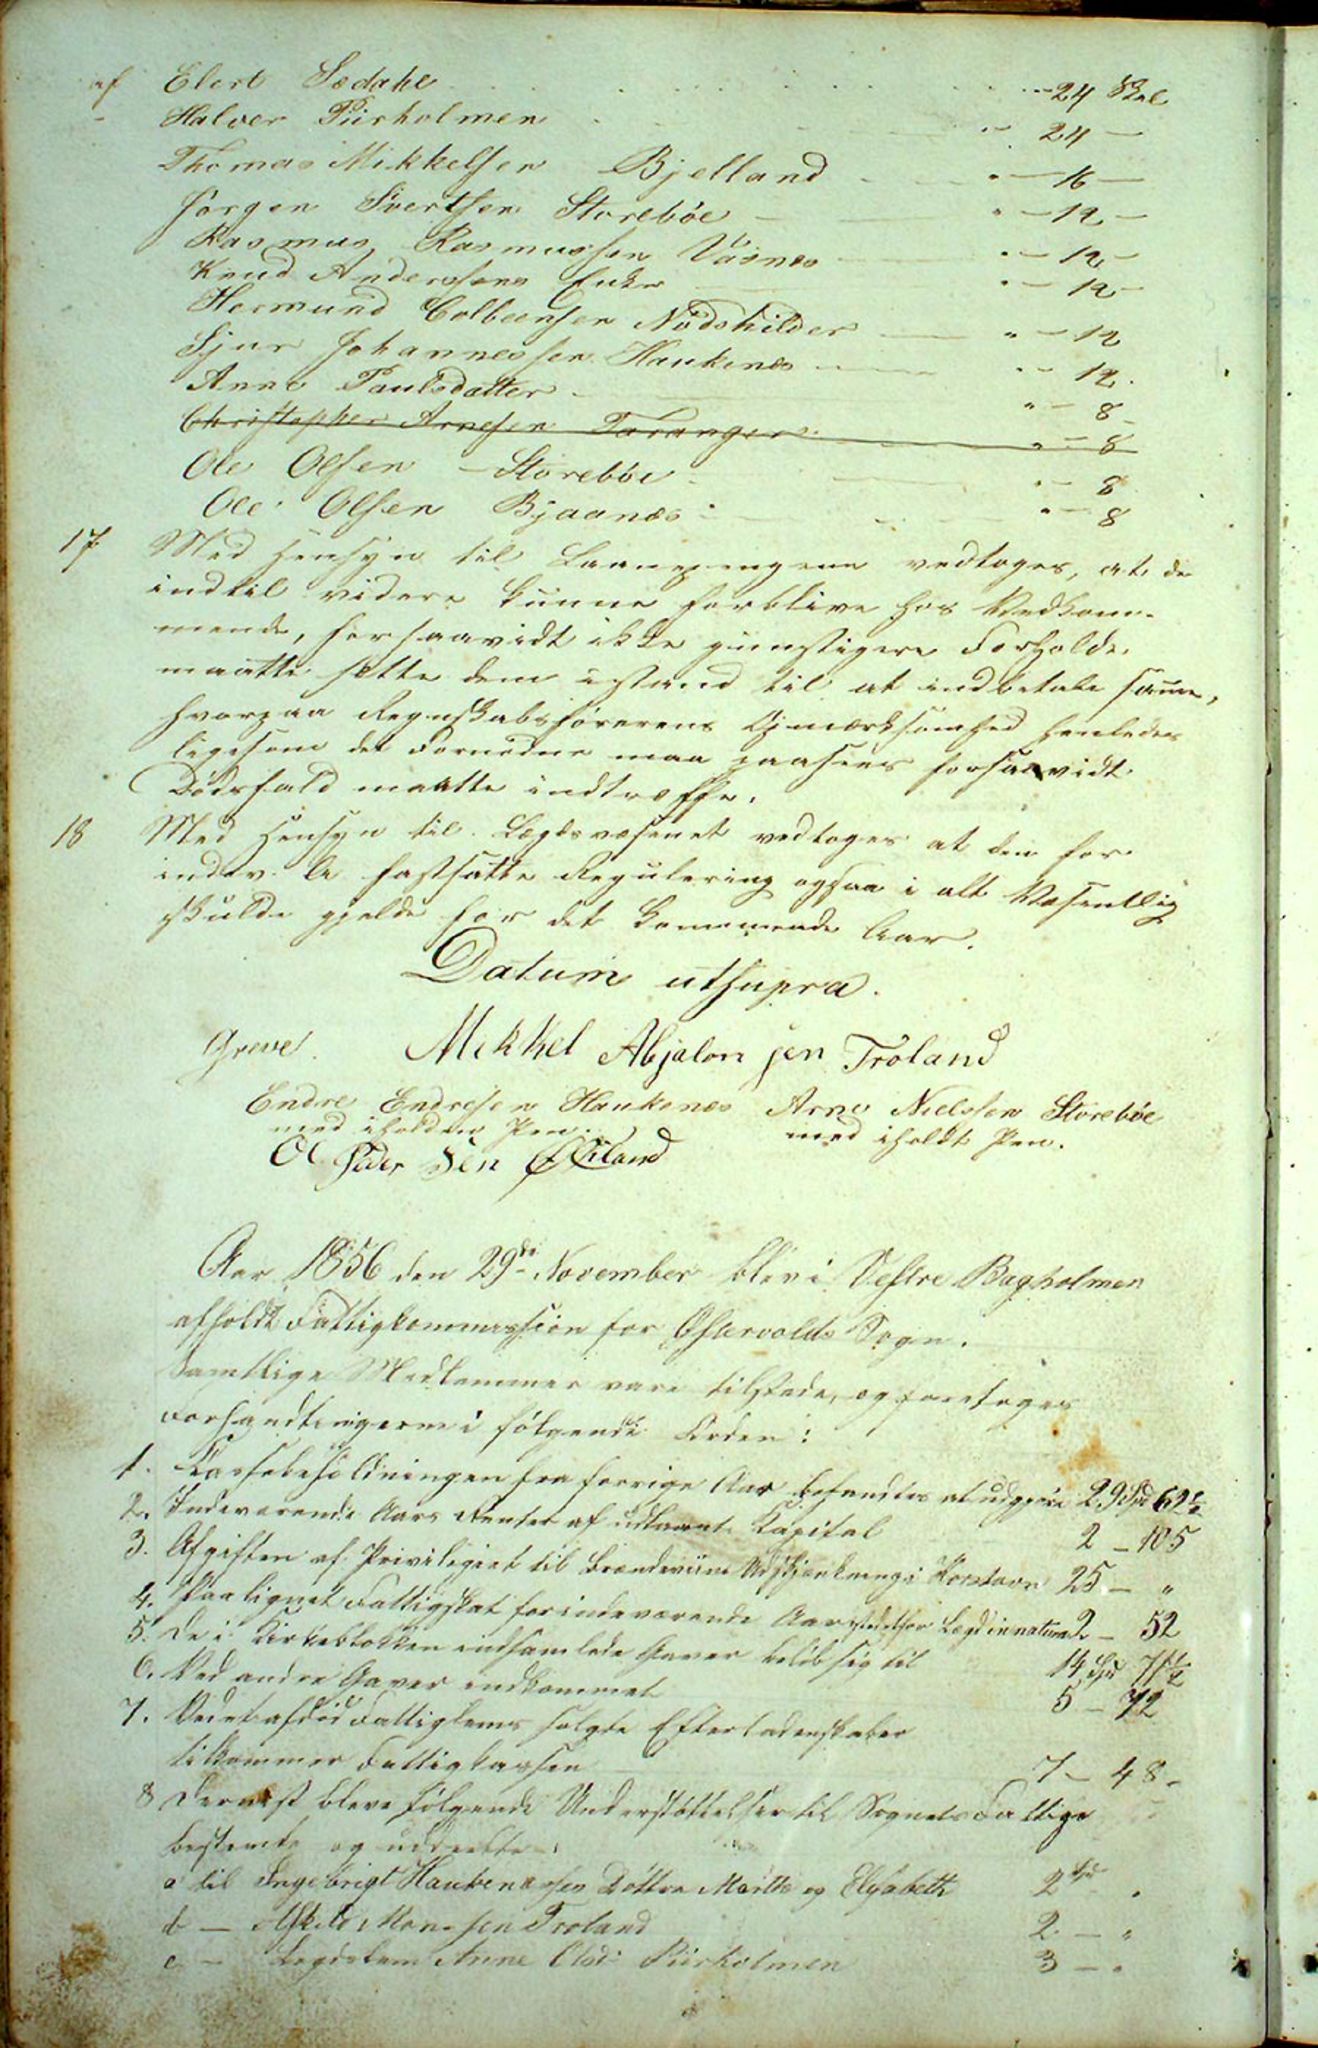 af Elert Sædahl . . . . . . . - 24 Skil
- Halver Piirholmen . . . . " - 24 -
Thomas Mikkelsen Bjelland - - " - 16 -
Jørgen Sivertsen Storebøe - - " - 12 -
Rasmus Rasmussen Vasnes - " - 12 -
Knud Anderssens Enke - " - 12 -
Hermund Colbensen Nødskilder - " - 12
Sjur Johannessen Haukenes - " - 12.
Anne Paulsdatter - " - 8 -
Christopher Arnesen Toranger - " - 8
Ole Olsen - Storebøe - " - 8
Ole Olsen Bjaanæs - " - 8
17 Med Hensyn til Laanepengene vedtoges, at de
indtil videre kunne forblive hos Vedkom-
mende, forsaavidt ikke gunstigere Forholde
maatte sætte dem istand til at indbetale samme,
hvorpaa Regnskabsførerens Opmærksomhed henledes
ligesom det Fornødne maa paasees forsaavidt
Dødsfald maatte indtræffe.
18 Med Hensyn til Lægdsvæsenet vedtoges at den for
indev. A fastsatte Regulering ogsaa i alt Væsentlig
skulde gjelde for det kommende Aar.
Datum utsupra.
Greve. Mikkel Absalonsen Troland
Endre Endresen Haukenes Arne Nielssen Storebøe
med iholden Pen. med iholdt Pen.
Ol Peder Sen
Aar 1856 den 29de November blev i Vestre Bagholmen
afholdt Fattigkommission for Østervolds Sogn.
Samtlige Medlemmer vare tilstede, og foretoges
Forhandlingerne i følgende Orden:
1. Kassebeholdningen fra forrige Aar befandtes at udgjøre 29 Spd 62½
2. Indeværende Aars Renter af udlaant Kapital 2 - 105
3. Afgiften af Privilegiet til Brændeviins Udskjænkning i Korshavn 25 - "
4. Paalignet Fattigskat for indeværende Aar istedetfor Lægd in natura 2 - 52
5. De i Kirkeblokken indsamlede Gaver beløb sig til 14 Spd 71½
6. Ved andre Gaver indkommet 5 - 72
7. Ved et afdød Fattiglems solgte Efterladenskaber
tilkommer Fattigkassen 7 - 48 -
8 Dernæst bleve følgende Understøttelser til Sognets Fattige
bestemte og uddeelte:
a til Ingebrigt Haukenæssen Døttre Marthe og Elisabeth 2 Spd "
b - Askild Monssen Troland 2 - "
c - Lægdslem Anne Olsd: Piirholmen 3 - "